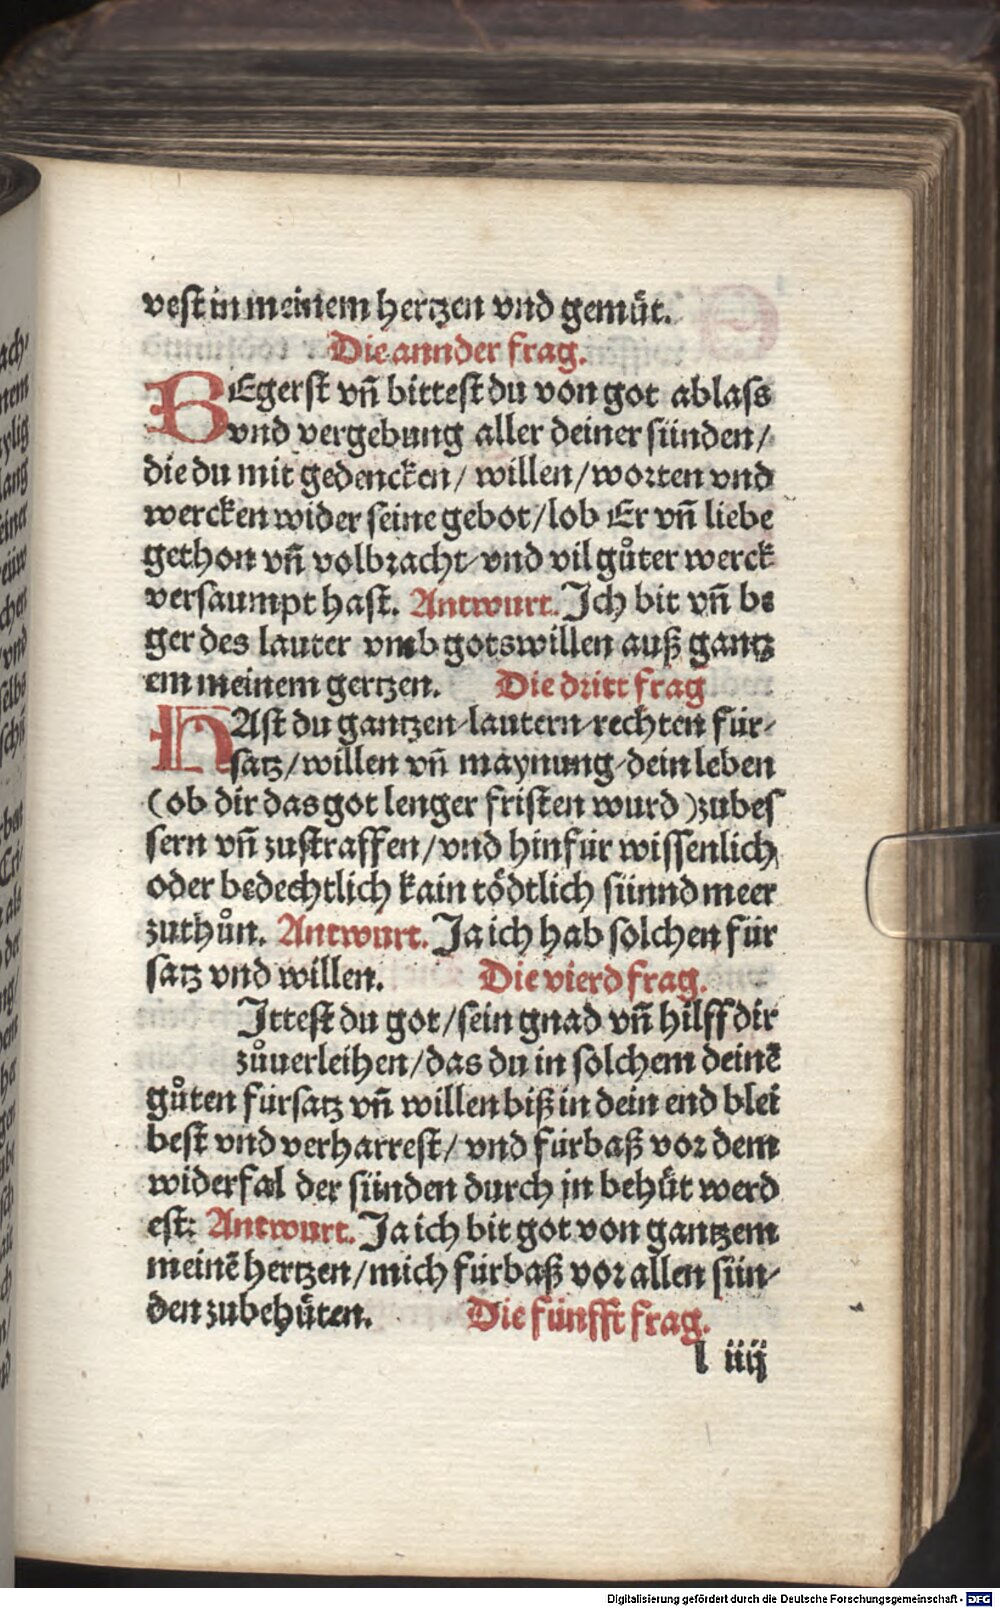 vest in meinem hertzen vnd gemüt.
Die annder frag.
BEgerst vn̄ bittest du von got ablass
vnd vergebung aller deiner sünden/
die du mit gedencken/ willen/ worten vnd
wercken wider seine gebot/ lob Er vn̄ liebe
gethon vn̄ volbracht/ vnd vil gůter werck
versaumpt hast. Antwurt. Ich bit vn̄ be
ger des lauter vmb gotswillen auß gantz
em meinem gertzen. Die dritt frag
HAst du gantzen/ lautern/ rechten für/
satz/ willen vn̄ maynung/ dein leben
(ob dir das got lenger fristen wurd) zubes
sern vn̄ zustraffen/ vnd hinfür wissenlich
oder bedechtlich kain tödtlich sünnd meer
zuthůn. Antwurt. Ja ich hab solchen für
satz vnd willen. Die vierd frag.
Ittest du got/ sein gnad vn̄ hilff dir
zůuerleihen/ das du in solchem deinē
gůten fürsatz vn̄ willen biß in dein end blei
best vnd verharrest/ vnd fürbaß vor dem
widerfal der sünden durch jn behüt werd
est: Antwurt. Ja ich bit got von gantzem
meinē hertzen/ mich fürbaß vor allen sün/
den zubehüten. Die fünfft frag.
l iiij
Digitalisierung gefördert durch die Deutsche Forschungsgemeinschaft - DFG